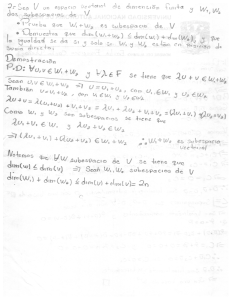 7.- Sea V un espacio vectorial de dimensión finita y W₁, W₂
dos subespacios de V.
• Pruebe que W₁+W₂ es subespacio de V
• Demuestre que dim(W₁+W₂) ≤ dim(W₁)+dim(W₂), y que
la igualdad se da si y solo si W₁ y W₂ están en
suma directa
Demostración
P.D: ∀u,v∈W₁+W₂ y ∀λ∈F se tiene que λu+v∈W₁+W₂
Sean u,v∈W₁+W₂ ⇒ u=u₁+u₂, con u₁∈W₁ y u₂∈W₂
También v=v₁+v₂, con v₁∈W₁ y v₂∈W₂
Como W₁ y W₂ son subespacios se tiene que
λu₁+v₁∈W₁ y λu₂+v₂∈W₂
⇒ (λu₁+v₁)+(λu₂+v₂)∈W₁+W₂ ∴ W₁+W₂ es subespacio
vectorial
Notemos que ∀W subespacio de V se tiene que
dim(W) ≤ dim(V) ⇒ Sean W₁,W₂ subespacios de V
dim(W₁)+dim(W₂) ≤ dim(V)+dim(V)=2n